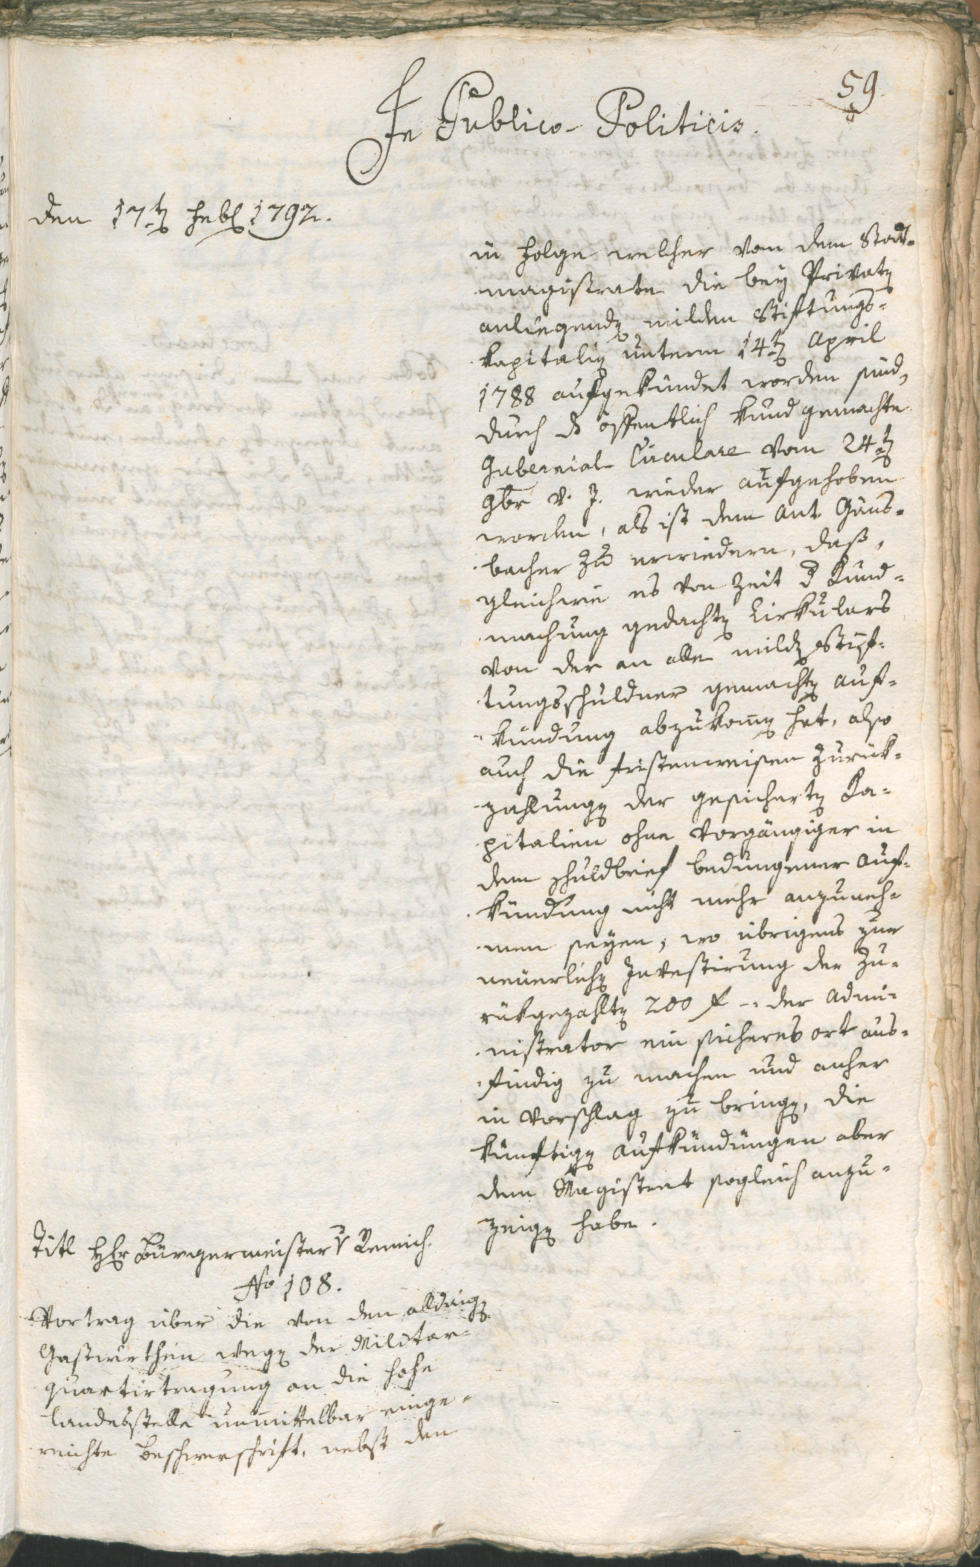 59.
In Publico-Politicis.
den 17t Febr 1792.
in Folge welcher von dem Stadt-
magistrate die bey Privat
anliegend milden Stiftungs-
kapitalin unterm 14t April
1788 aufgekündet worden sind,
durch d öffentlich kund gemachte
Gubernial-Circulare vom 24t
9br v. J. wieder aufgehoben
worden, als ist dem Ant. Gäns-
bacher zu erwiedern, daß,
gleichwie es von Zeit d Kund-
machung gedacht Cirkulars
von der an alle mild Stif-
tungsschuldner gemacht Auf-
kündung abzukomm hat, also
auch die fristenweisen Zurük-
zahlung der gesichert Ka-
pitalien ohne vorgängiger in
dem Schuldbrief bedungener Auf-
kündung nicht mehr anzuneh-
men seyen, wo übrigens zur
neuerlich Investirung der zu-
rükgezahlt 200 f –. der Admi-
nistrator ein sicheres Ort aus-
findig zu machen und anher
in Vorschlag zu bring, die
künftig Aufkündungen aber
dem Magistrat sogleich anzu-
zeig habe.
Titl Hr Bürgermeister v Remich.
No 108.
Vortrag über die von den alldasig
Gastwirthen weg der Militar-
quartirtragung an die hohe
Landesstelle unmittelbar einge-
reichte Beschwerschrift, nebst den